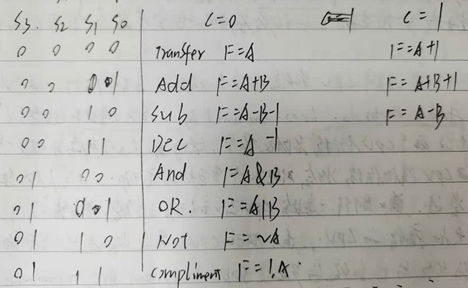 S3. S2 S1 S0 C=0 C=1
0 0 0 0 Transfer F=A F=A+1
0 0 0 1 Add F=A+B F=A+B+1
0 0 1 0 Sub F=A-B-1 F=A-B
0 0 1 1 Dec F=A-1
0 1 0 0 And F=A&B
0 1 0 1 OR. F=A|B
0 1 1 0 Not F=~A
0 1 1 1 compliment F=!A.